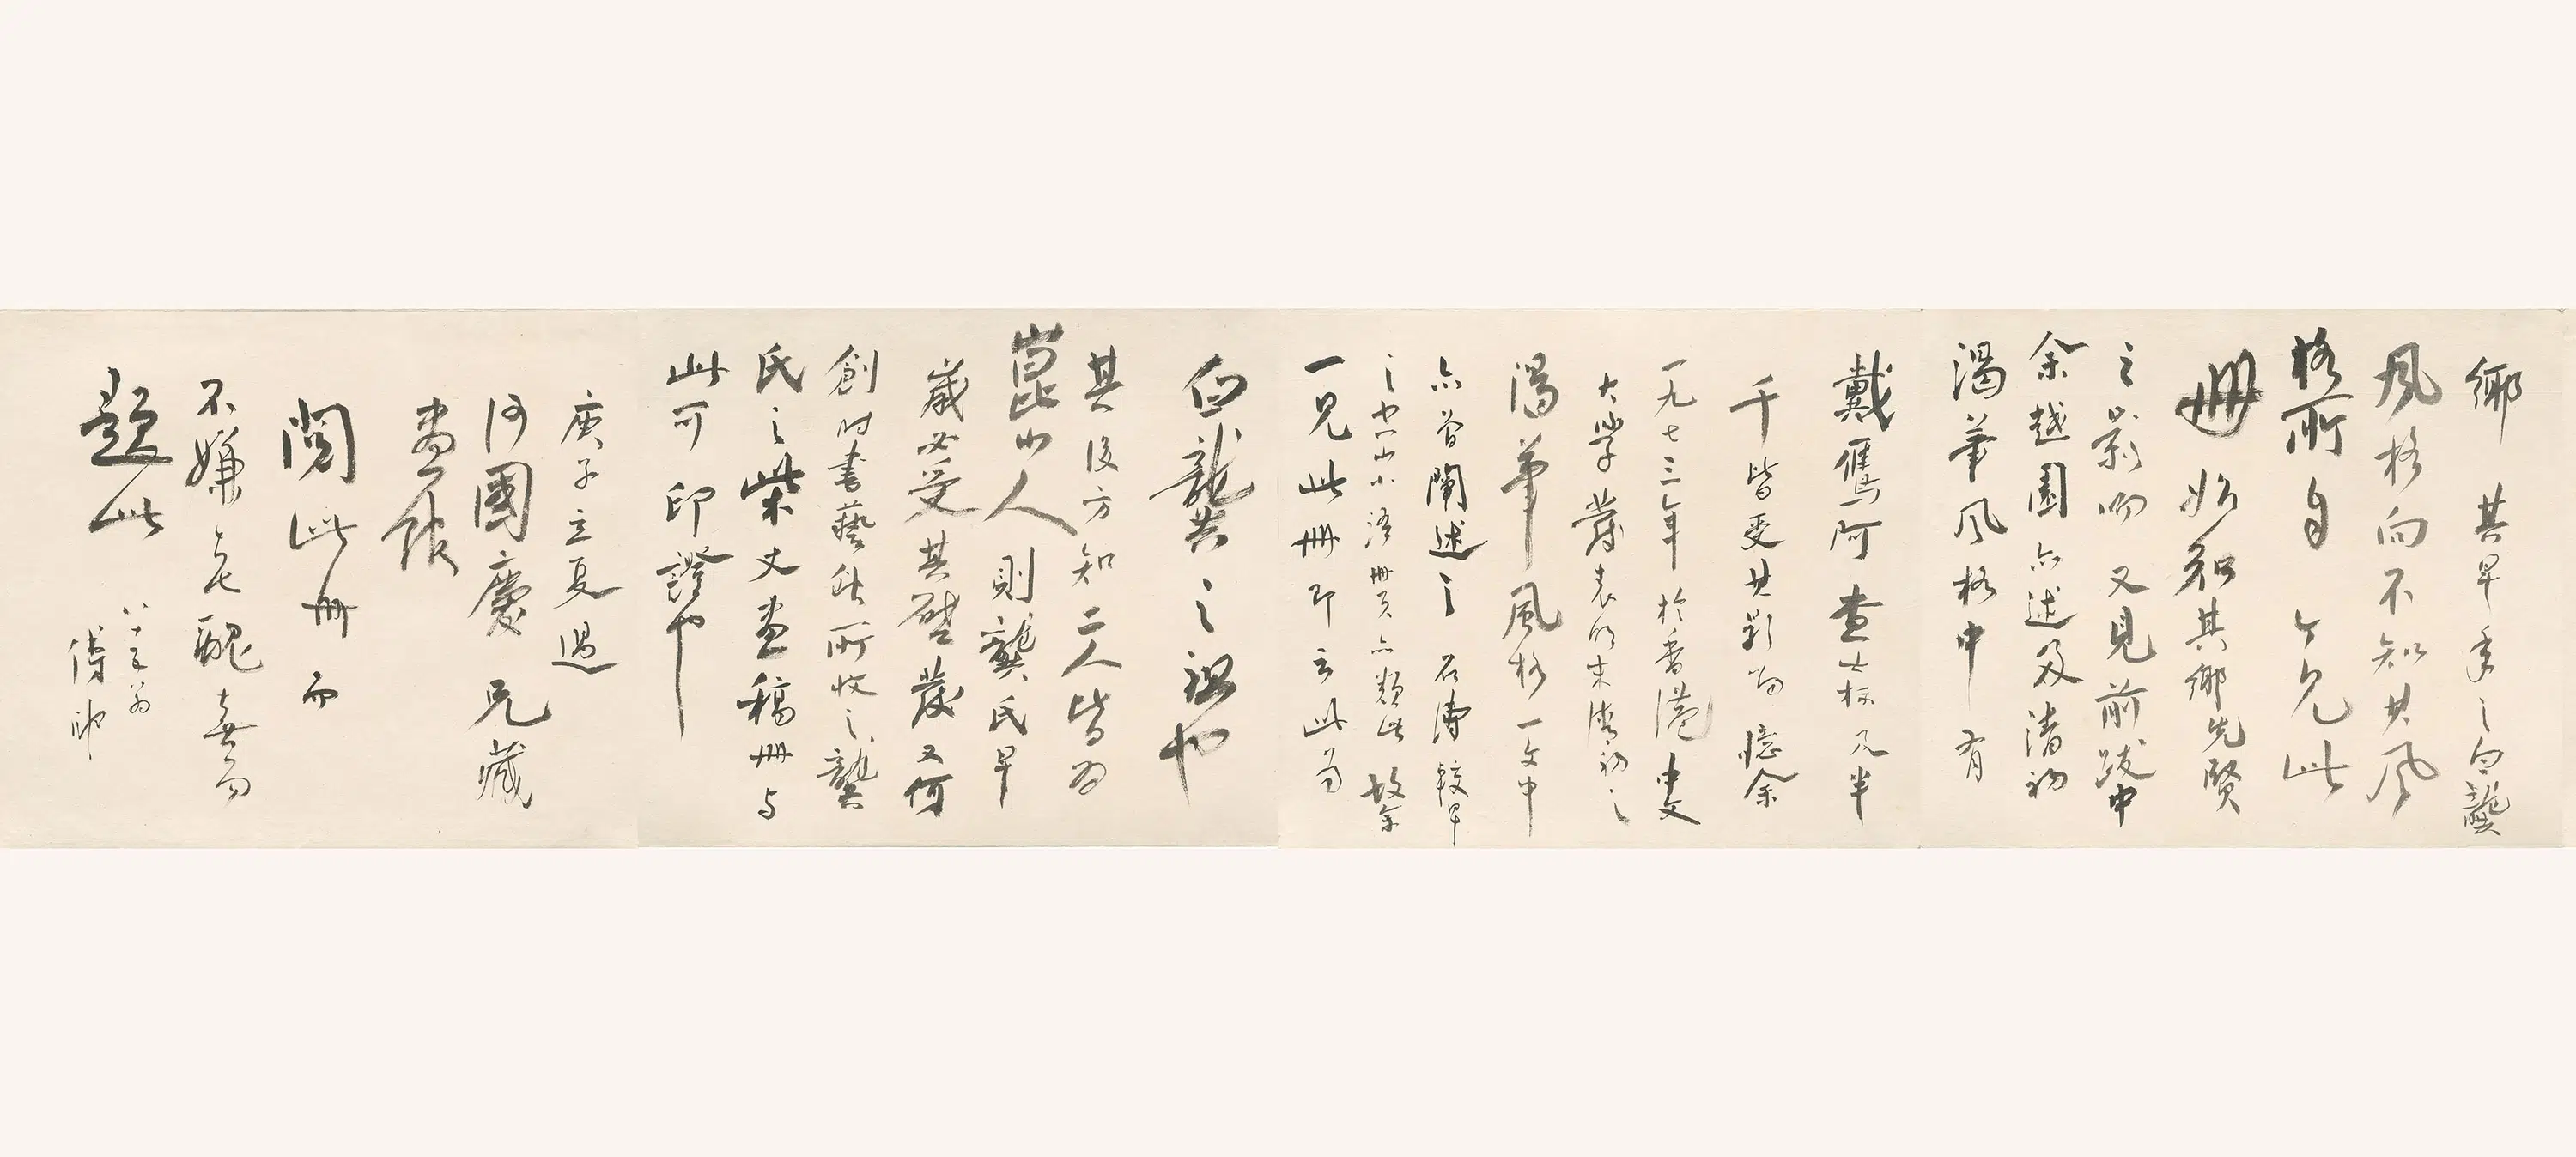 鄉 其早年之白龔
風格向不知其風
格所自 今見此
冊 始知其鄉先賢
之影响 又見前跋中
余越園亦述及清初
渴筆風格中 有
戴鷹阿 查士标 凡半
千 皆受其影响 憶余
一九七三年 於香港中文
大學 發表明末清初之
渴筆風格一文中
亦曾闡述之 石濤較早
之 山水 冊頁亦類此 故余
一見此冊 即云此為
白龔之祖也
其後方知二人皆為
崑山人 則龔氏早
歲必受其啟發 又何
創时書藝 所收之龔
氏之柴丈畫稿冊 与
此可印證也
庚子立夏 過
何國慶兄藏
畫
閱此冊 而
不嫌老醜 無为
題此
八十 翁
傅申